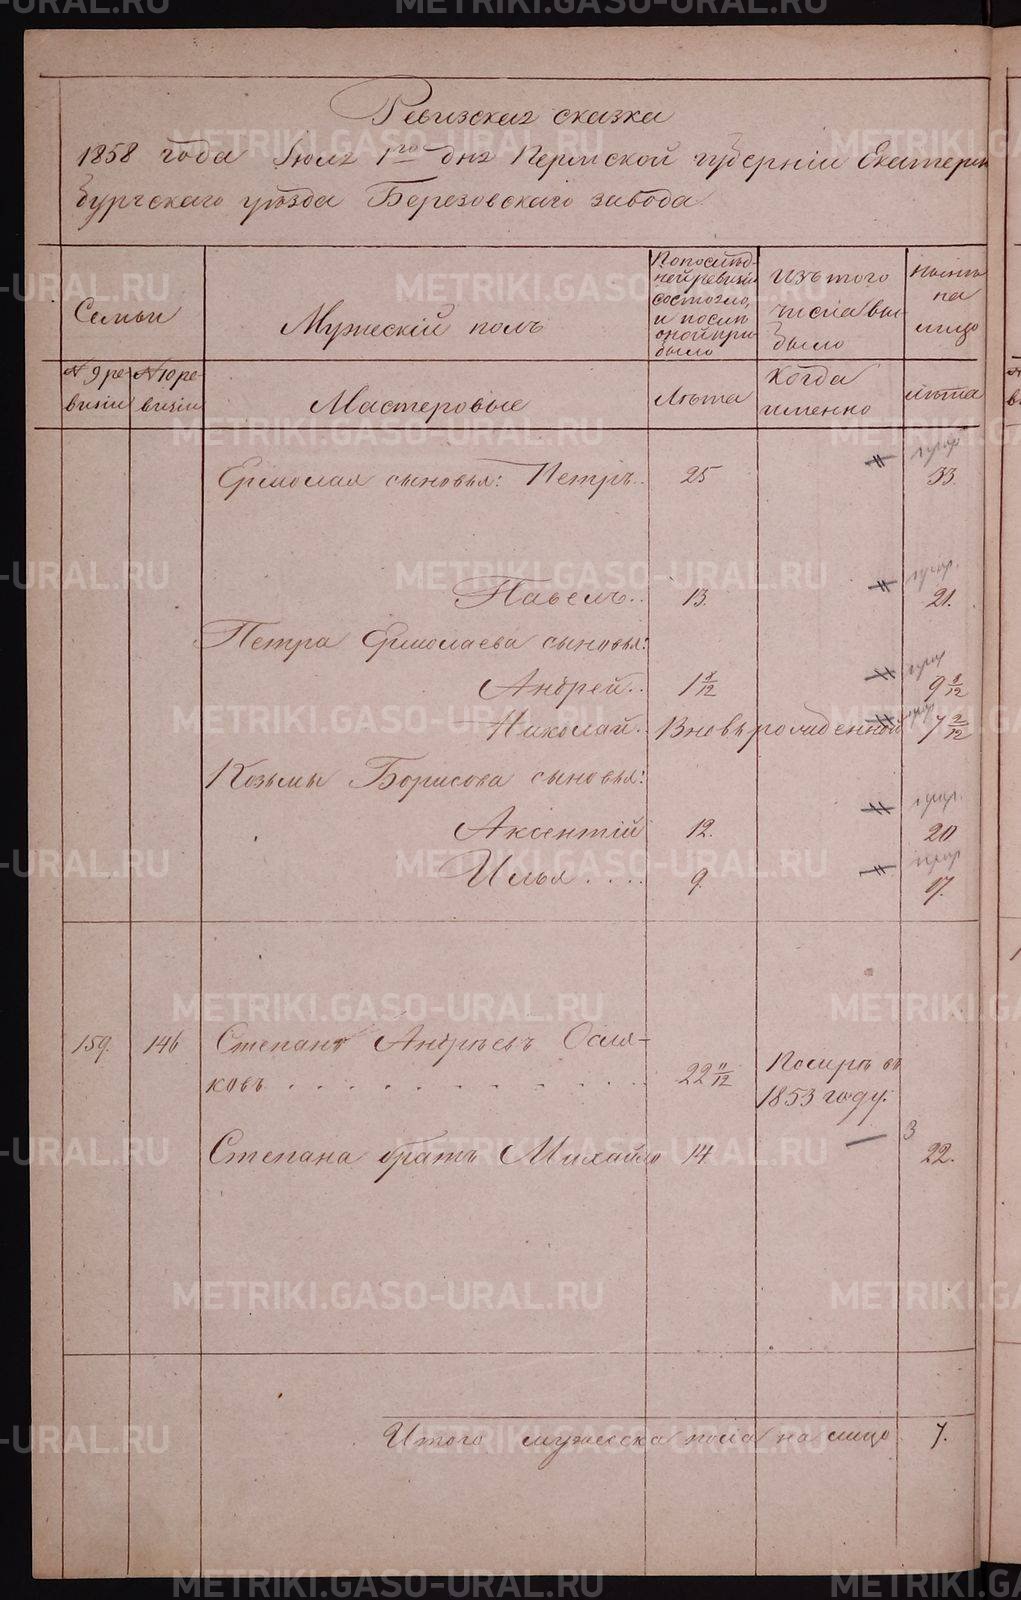 METRIKI.GASO-URAL.RU
Ревизская сказка
1858 года Іюля 1го дня Пермской губерніи Екатерин
бургскаго уѣзда Березовскаго завода
Семьи
Мужескій полъ
По послѣд-
ней ревизіи
состояло,
и послѣ
оной при
было
Изъ того
числа вы
было
Нынѣ
на
лицо
№ 9 ре-
визіи
№ 10 ре-
визіи
Мастеровые
Лѣта
Когда
именно
лѣта
Ермолая сыновья: Петръ.. 25 33.
Павелъ.. 13. 21.
Петра Ермолаева сыновья:
Андрей.. 1 8/12 9 8/12
Николай. Вновь рожденной 7 2/12
Козьмы Борисова сыновья:
Аксентій 12. 20
Илья .... 9. 17.
159. 146 Степанъ Андрѣевъ Осля-
ковъ . . . . . . . . . . . . 22 11/12 Помре въ
1853 году.
Степана братъ Михайло 14 3 22.
Итого мужеска пола на лицо 7.